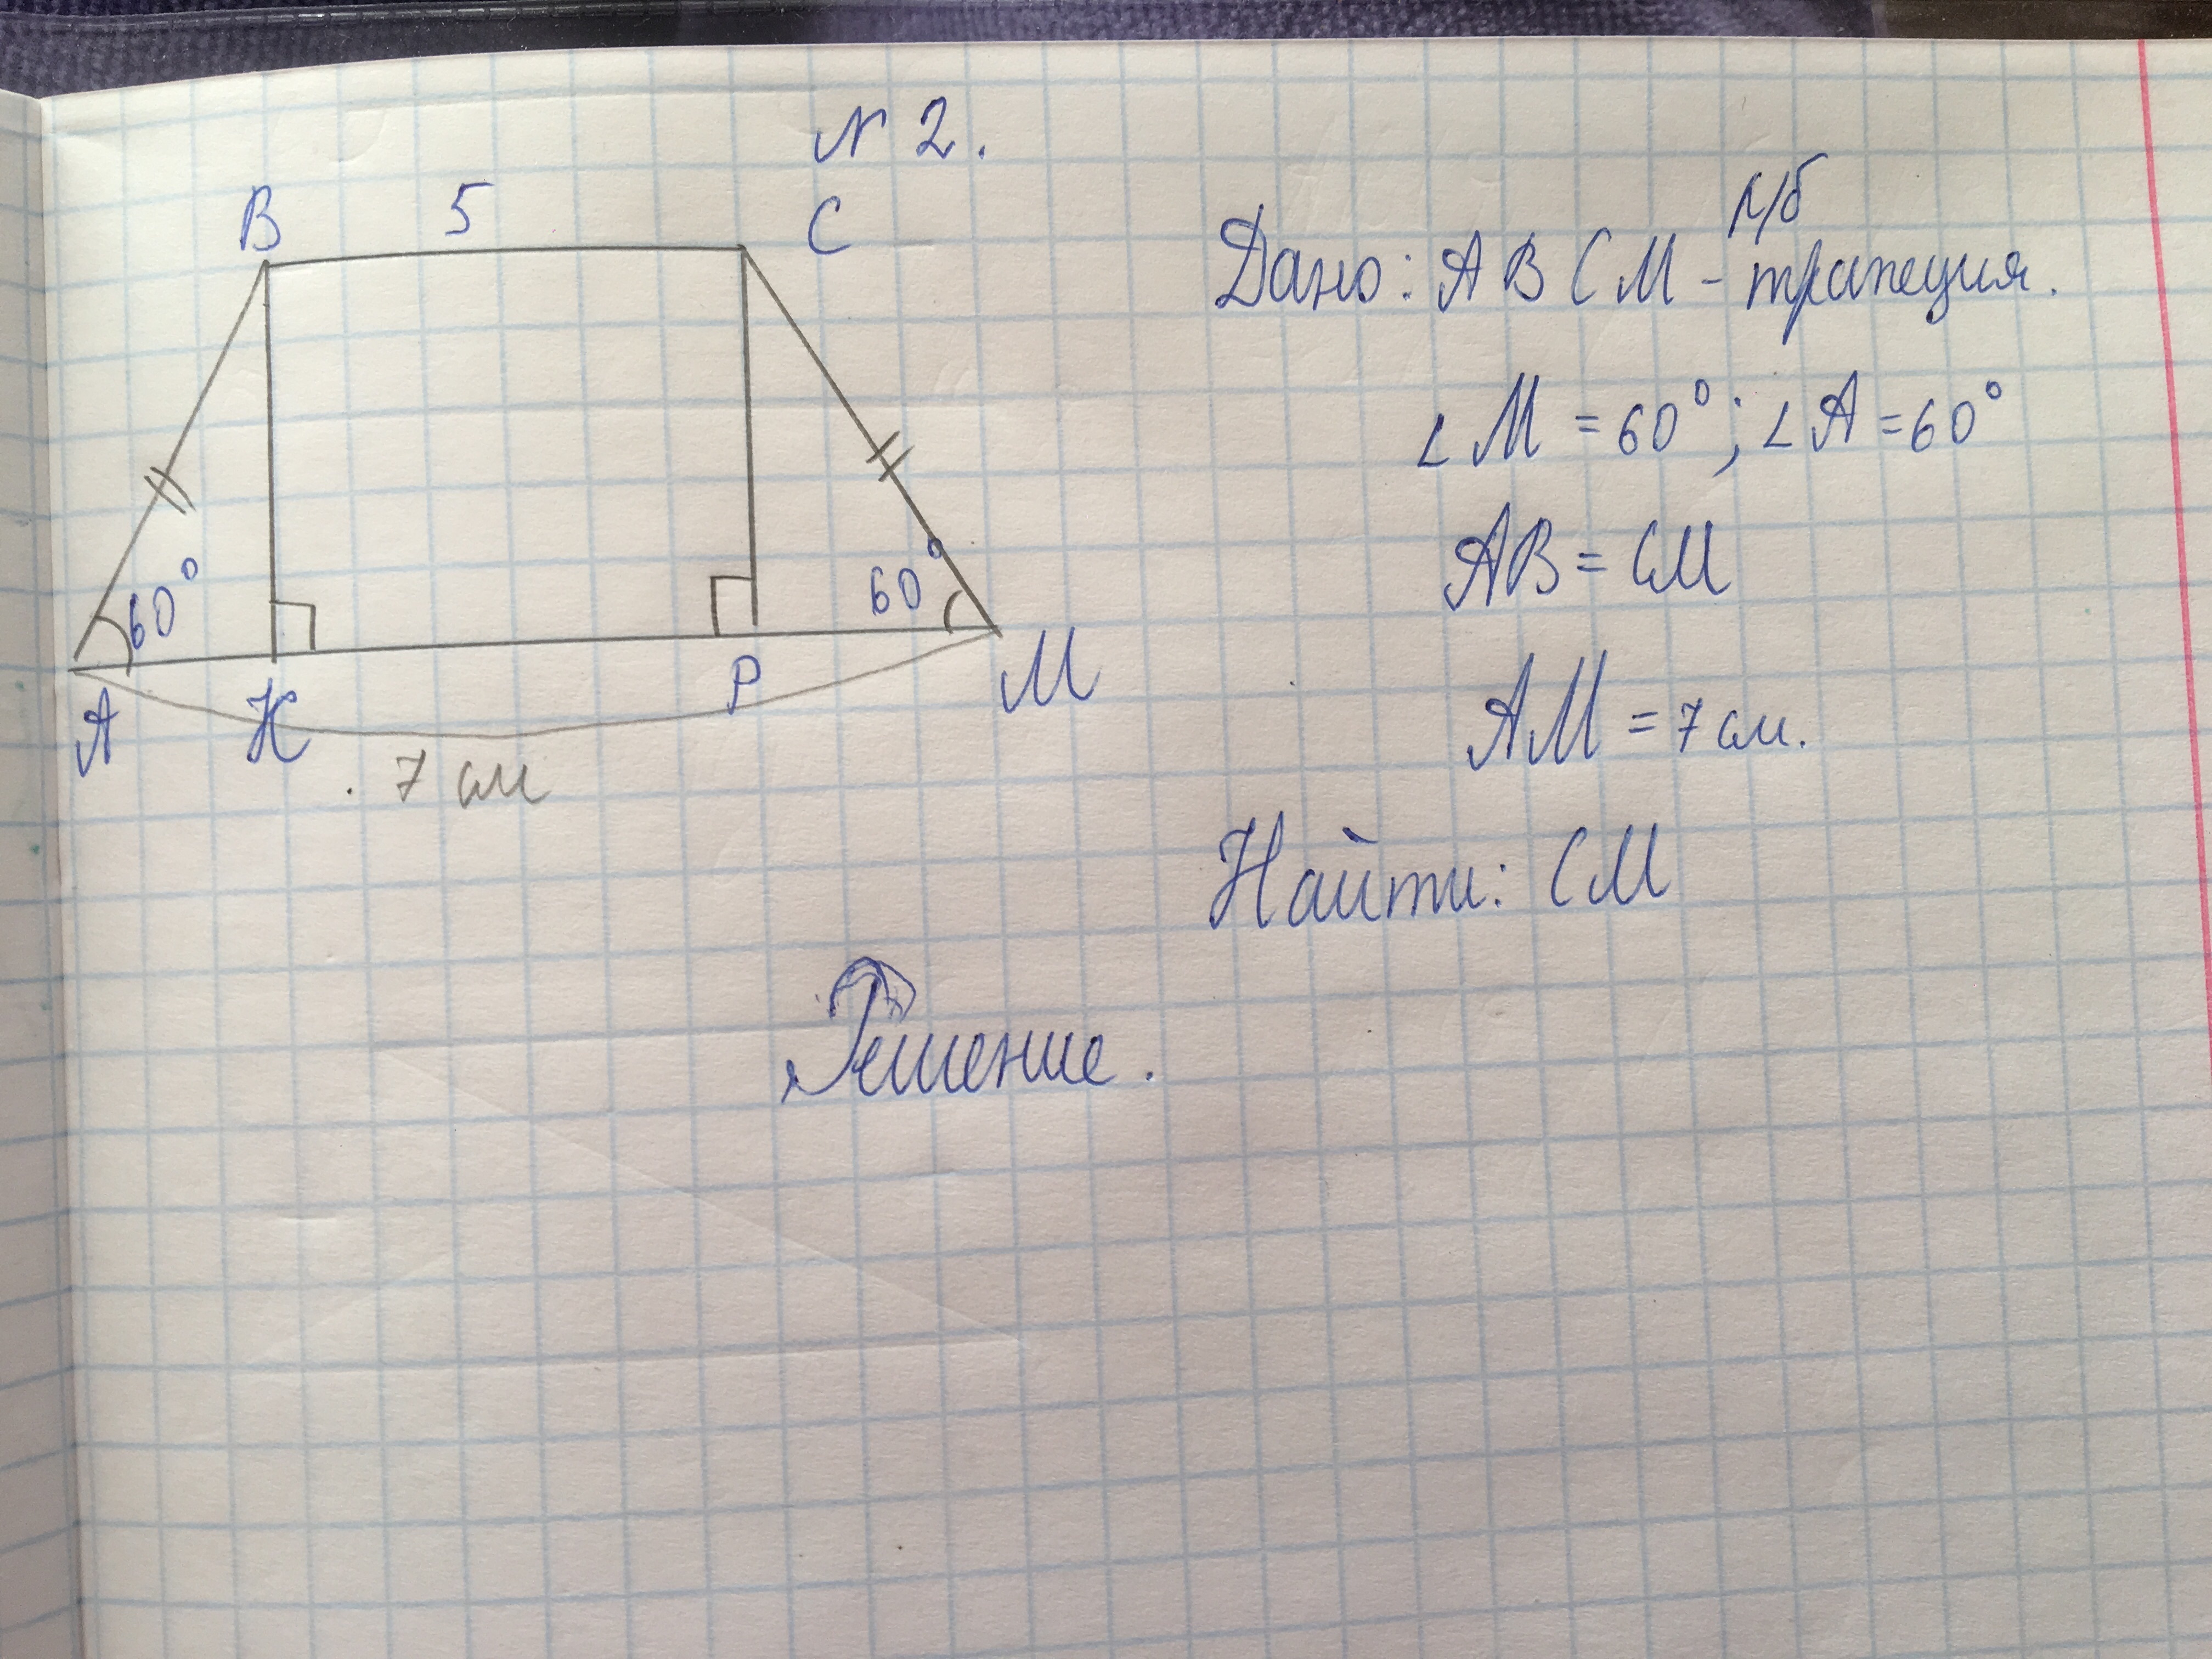 N 2.
B 5 C
60°
60°
A K P M
7 см
р/б
Дано: ABCM - трапеция.
∠M = 60°; ∠A = 60°
AB = CM
AM = 7 см.
Найти: CM
Решение.